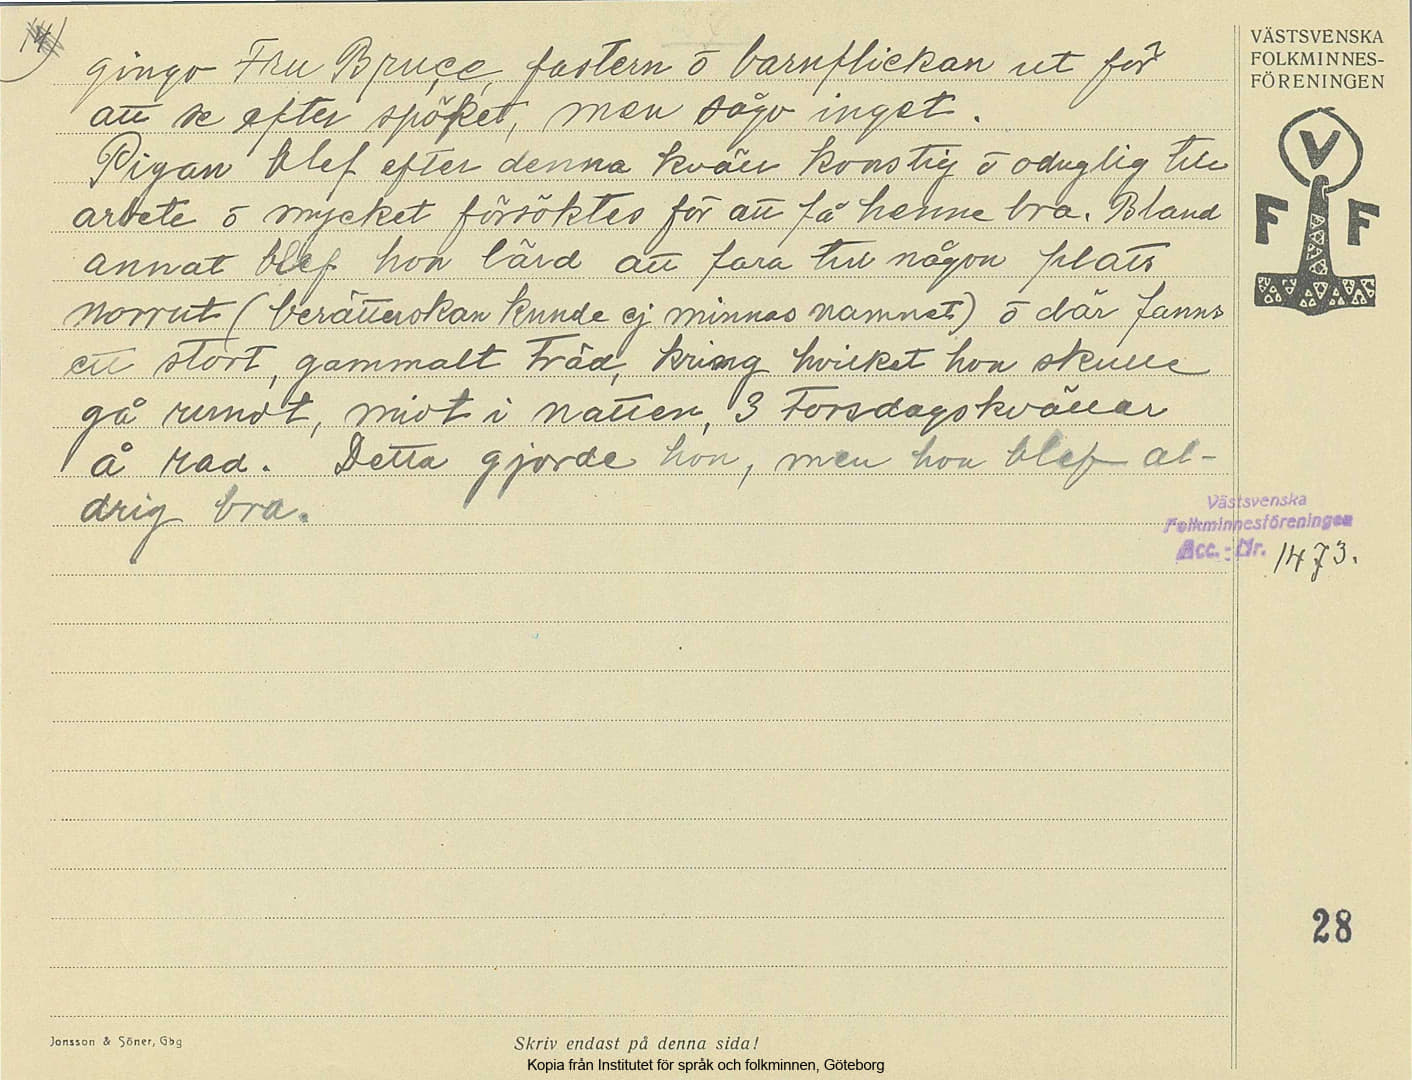 gingo Fru Bruce, fastern ō barnflickan ut för
att se efter spöket, men sågo inget.
Pigan blef efter denna kväll konstig ō oduglig till
arbete ō mycket försöktes för att få henne bra. Bland
annat blef hon lärd att fara till någon plats
norrut (berätterskan kunde ej minnas namnet) ō där fanns
ett stort, gammalt träd, kring hvilket hon skulle
gå rundt, midt i natten, 3 Torsdagskvällar
å rad. Detta gjorde hon, men hon blef al-
drig bra.
VÄSTSVENSKA
FOLKMINNES-
FÖRENINGEN
V
F F
Västsvenska
Folkminnesföreningen
Acc.-Nr. 1473.
28
Jonsson & Söner, Gbg
Skriv endast på denna sida!
Kopia från Institutet för språk och folkminnen, Göteborg